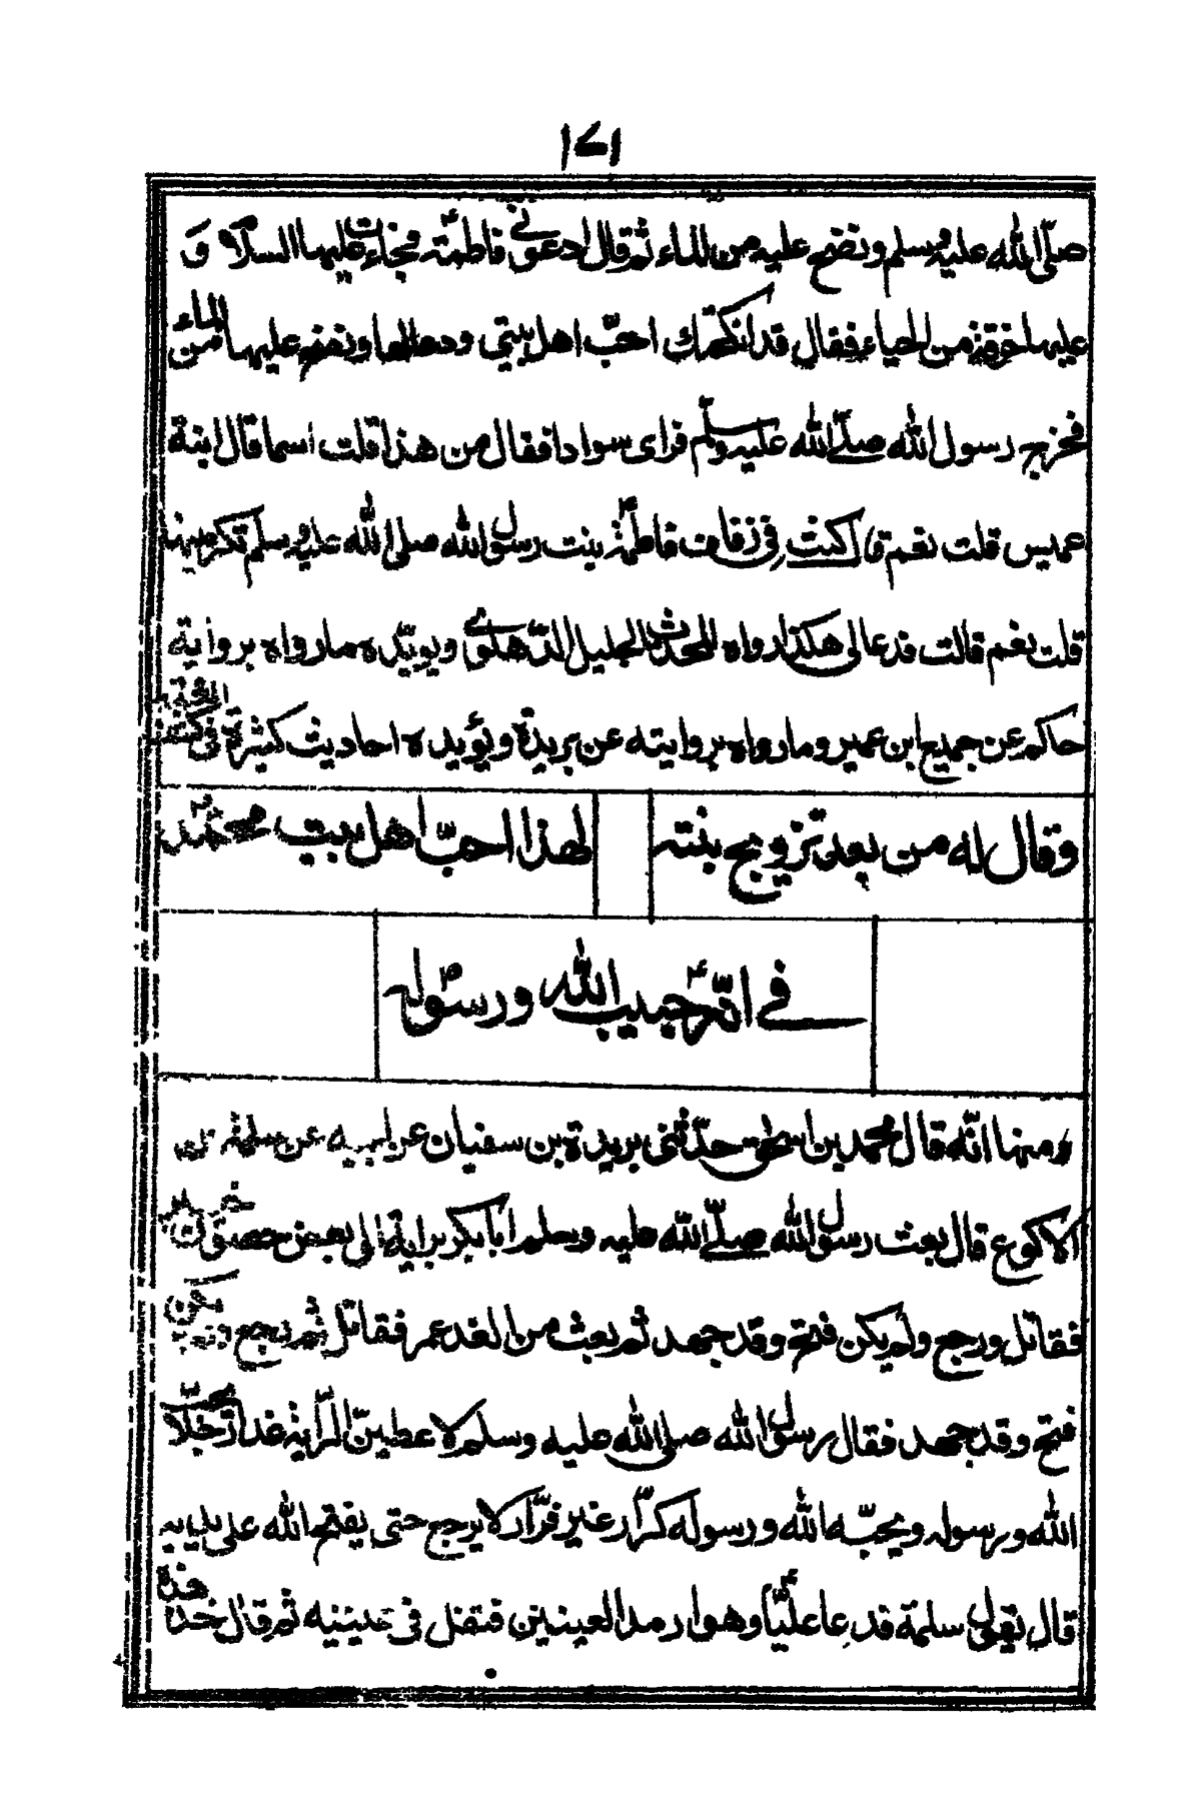 ١٤١
صلى الله عليه وسلم ونضح عليه من الماء ثم قال ادعونى فاطمة فجاءت عليها السلام و
عليها خرقة من الحياء فقال قد انكحتك احبّ اهل بيتى ودعا لهما ونضح عليهما من الماء
فخرج رسول الله صلّى الله عليه وسلم فراى سوادا فقال من هذا قلت اسما قال ابنة
عميس قلت نعم قال كنت فى زفاف فاطمة بنت رسول الله صلى الله عليه وسلم تكرمينه
قلت نعم قالت فدعا لى هكذا رواه المحدث الجليل الدهلوى ويويّده ما رواه برواية
حاكم عن جميع ابن عمير وما رواه بروايته عن بريدة ويؤيده احاديث كثيرة فى
وقال له من بعد تزويج بنته لهذا احبّ اهل بيت محمد
فے انّه حبيب الله ورسوله
ومنها انّه قال محمد بن اسحٰق حدّثنى بريدة بن سفيان عن ابيه عن سلمة بن
الاكوع قال بعث رسول الله صلّى الله عليه وسلم ابا بكر براية الى بعض حصون خيبر
فقاتل ورجع ولم يكن فتح وقد جهد ثم بعث من الغد عمر فقاتل ثم رجع ولم يكن
فتح وقد جهد فقال رسول الله صلى الله عليه وسلم لاعطينّ الراية غدا رجلا يحبّ
الله ورسوله ويحبّه الله ورسوله كرّار غير فرّار لا يرجع حتى يفتح الله على يديه
قال يقول سلمة فدعا عليّا وهو ارمد العينين فتفل فى عينيه ثم قال خذ هذه